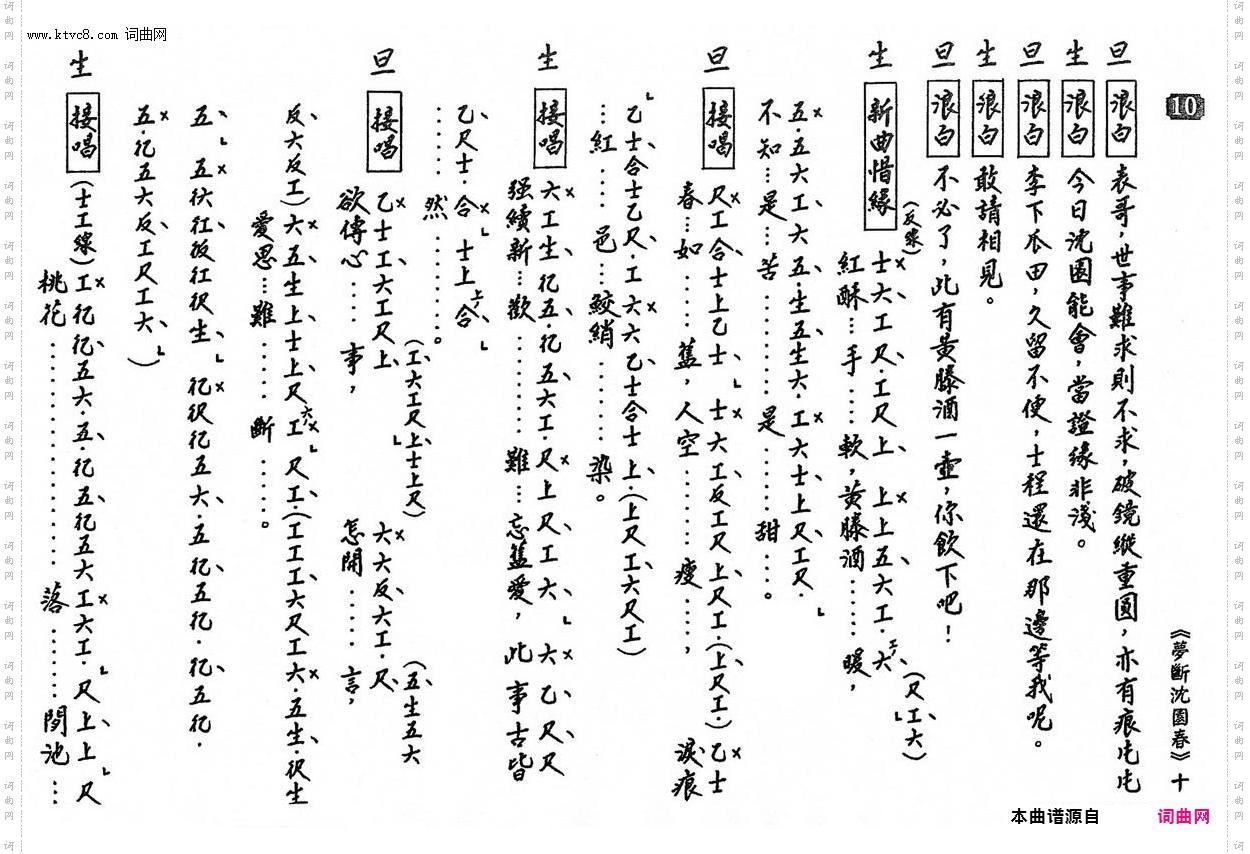 www.ktvc8.com 词曲网
10
《夢斷沈園春》十
旦 浪白 表哥，世事難求則不求，破鏡縱重圓，亦有痕屯屯
生 浪白 今日沈園能會，當證緣非淺。
旦 浪白 李下瓜田，久留不便，士程還在那邊等我呢。
生 浪白 敢請相見。
旦 浪白 不必了，此有黃滕酒一壺，你飲下吧！
生 新曲惜緣 (反線) 士大工尺·工尺上 上上五六工·六 (尺工六)
紅酥…手……軟，黃滕酒………暖，
五·五六工·六五·生五生六·工六士上尺工尺·
不知…是…苦………是…甜…。
旦 接唱 尺工合士上乙士 士六工反工尺上尺工·(上尺工·) 乙士
春…如……舊，人空………瘦……，淚痕
乙士合士乙尺·工六六乙士合士上·(上尺工·六尺工)
…紅…邑…鮫綃………染。
生 接唱 六工生·亿五·亿五六工·尺上尺工六 六乙尺尺
强續新…歡………難…忘舊愛，此事古皆
乙尺士·合 士上·合
……然……。
旦 接唱 乙士工六工尺上 (工六工尺上·士上尺) 六六反六工·尺 (五生五六
欲傳心…事，怎開……言，
反六反工) 六·五生上士上尺 工 尺工·(工工工六尺工六·五生·伬生
愛恩…難……斷……。
五 五伏仜仮仜伬生 亿伬亿五六·五亿·五亿·亿五亿·
五·亿五六反工尺工六)
生 接唱 (士工線) 工亿亿·五六·五·亿五亿五六工六工·尺上上尺
桃花………………落……閒池…
本曲谱源自 词曲网